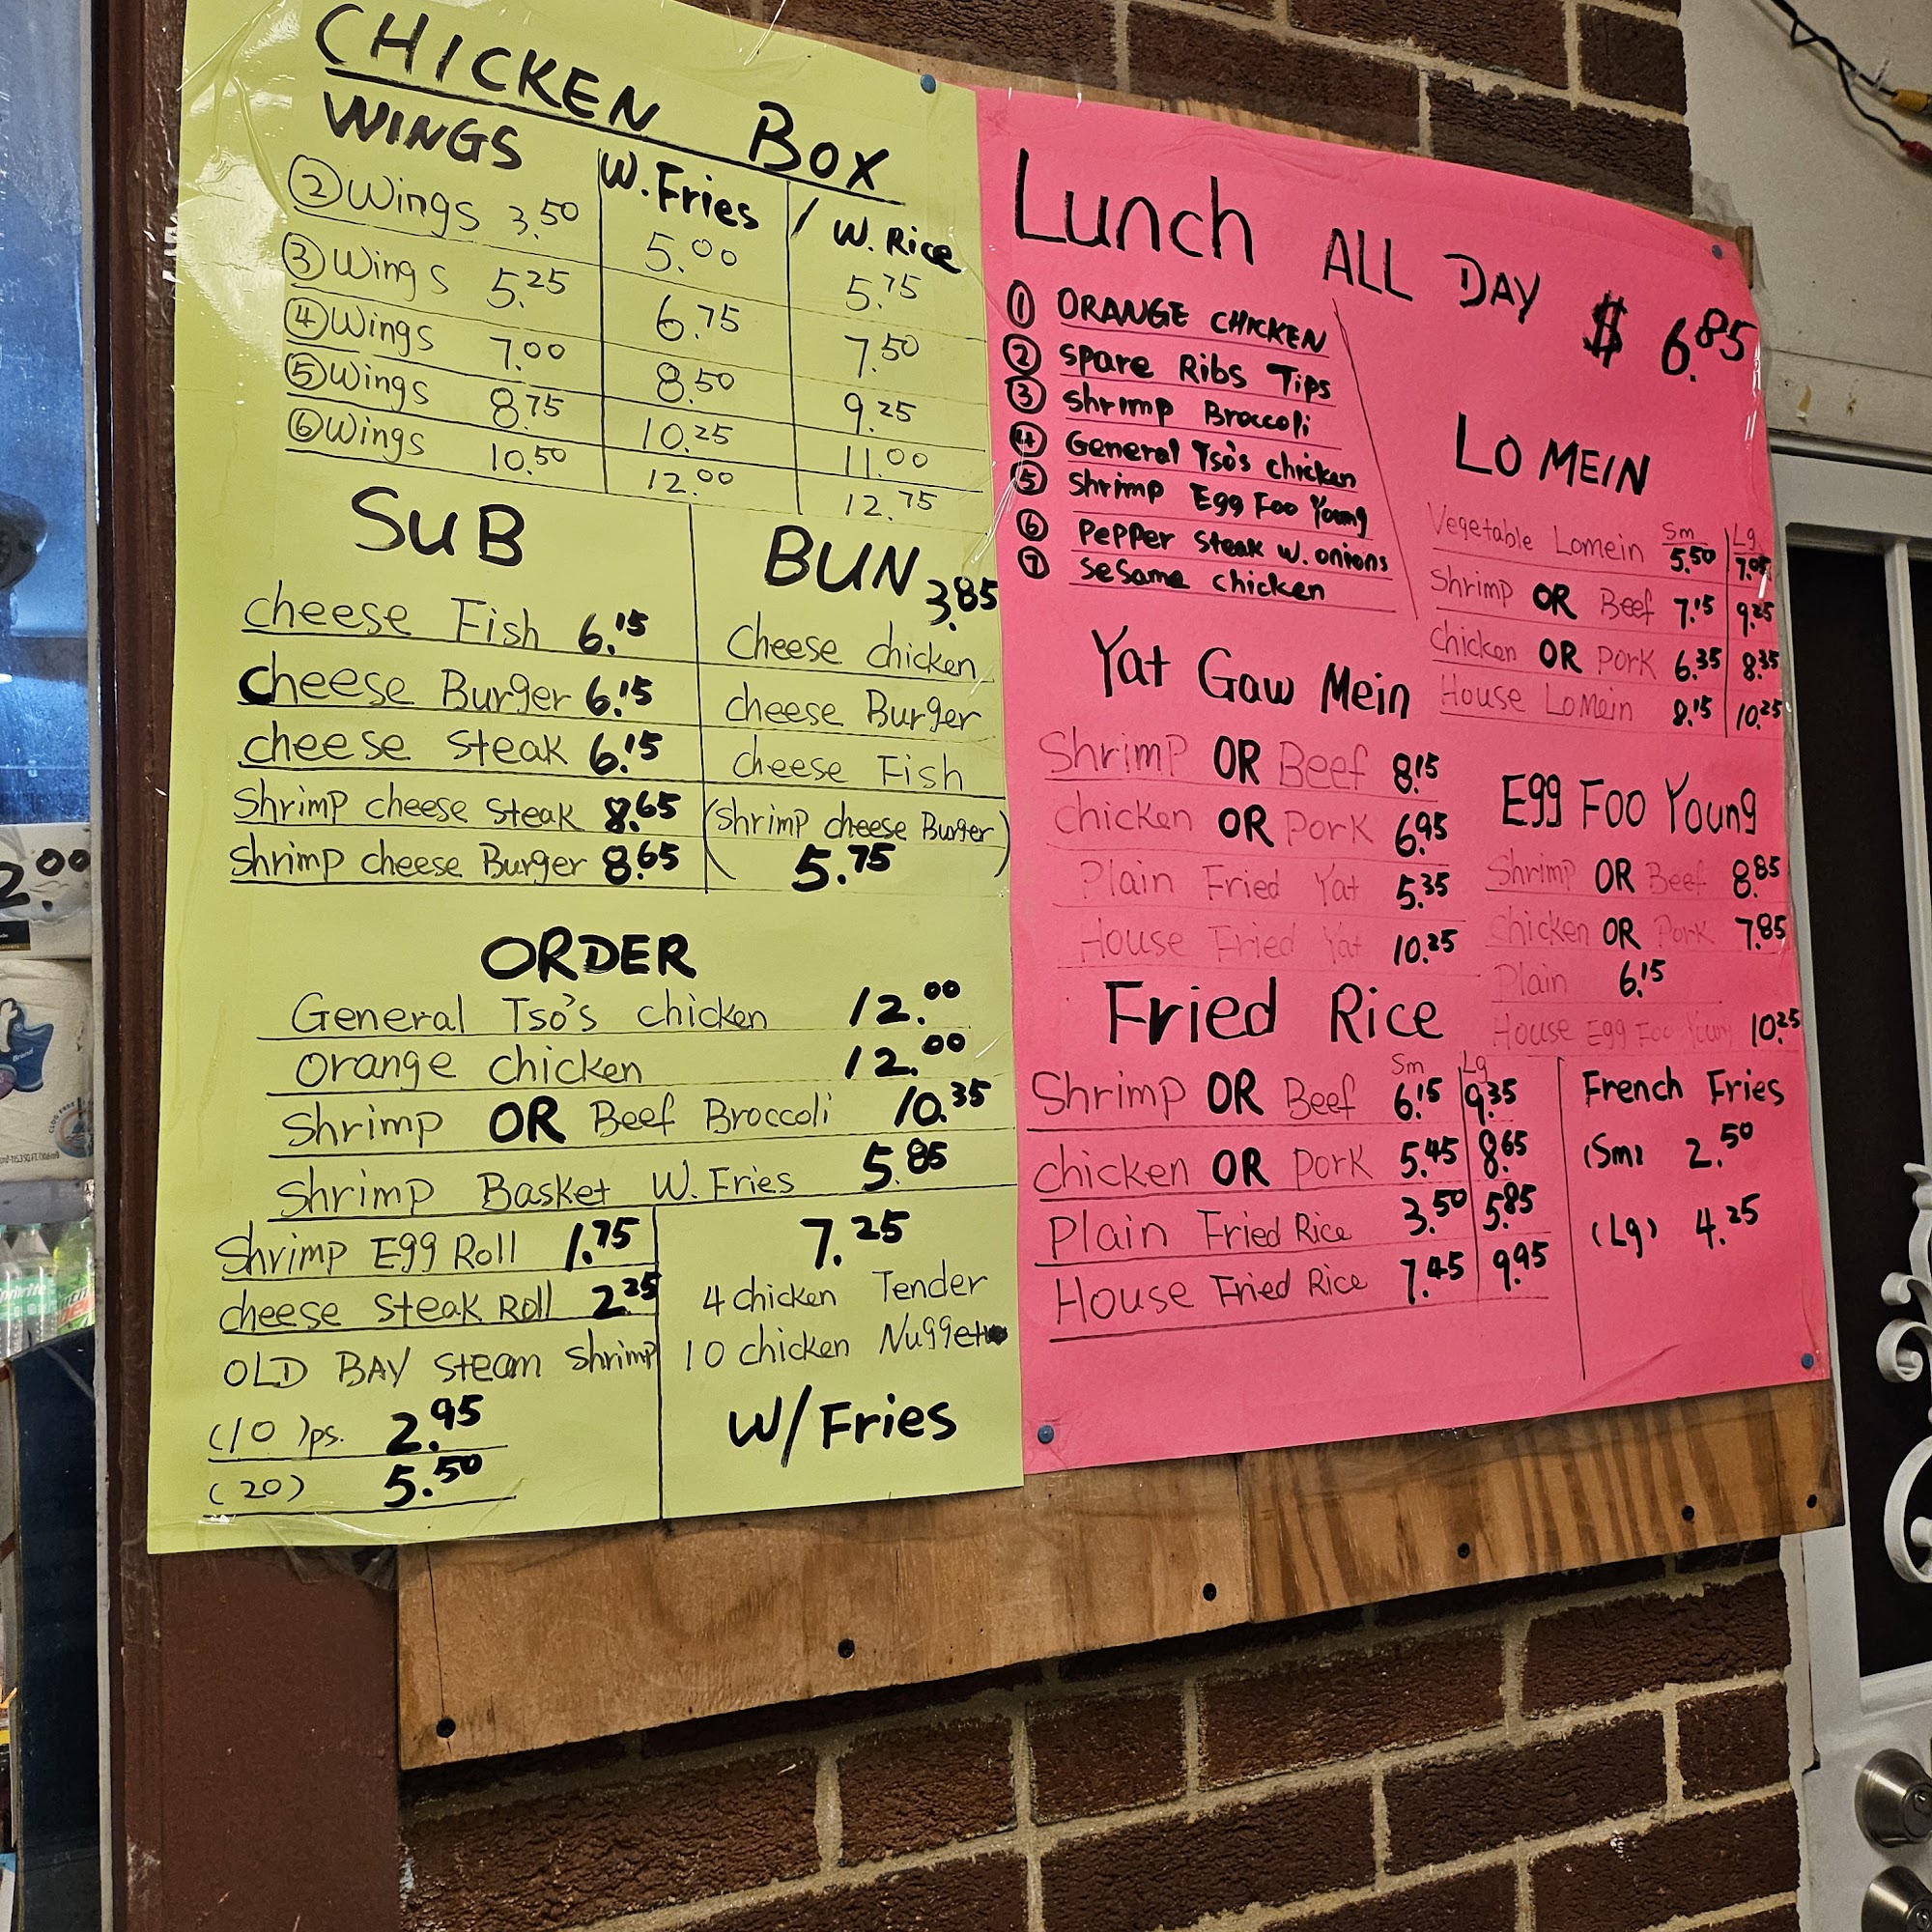 CHICKEN BOX
WINGS W. Fries / W. Rice
② Wings 3.50 5.00 5.75
③ Wings 5.25 6.75 7.50
④ Wings 7.00 8.50 9.25
⑤ Wings 8.75 10.25 11.00
⑥ Wings 10.50 12.00 12.75
SUB
cheese Fish 6.15
cheese Burger 6.15
cheese steak 6.15
Shrimp cheese steak 8.65
Shrimp cheese Burger 8.65
BUN 3.85
Cheese chicken
cheese Burger
cheese Fish
(shrimp cheese Burger)
5.75
ORDER
General Tso's chicken 12.00
orange chicken 12.00
Shrimp OR Beef Broccoli 10.35
Shrimp Basket W. Fries 5.85
Shrimp Egg Roll 1.75
cheese steak Roll 2.25
OLD BAY steam shrimp
(10)ps. 2.95
(20) 5.50
7.25
4 chicken Tender
10 chicken Nugget
W/Fries
Lunch ALL DAY $ 6.85
① ORANGE CHICKEN
② Spare Ribs Tips
③ Shrimp Broccoli
④ General Tso's chicken
⑤ Shrimp Egg Foo Young
⑥ Pepper Steak w. onions
⑦ Sesame chicken
LO MEIN
Sm Lg
Vegetable Lomein 5.50
Shrimp OR Beef 7.15 9.25
chicken OR Pork 6.35 8.35
House Lo Mein 8.15 10.25
Yat Gaw Mein
Shrimp OR Beef 8.15
chicken OR Pork 6.95
Plain Fried Yat 5.35
House Fried Yat 10.25
Egg Foo Young
Shrimp OR Beef 8.85
chicken OR Pork 7.85
Plain 6.15
House Egg Foo Young 10.25
Fried Rice
Sm Lg
Shrimp OR Beef 6.15 9.35
chicken OR Pork 5.45 8.65
Plain Fried Rice 3.50 5.85
House Fried Rice 7.45 9.95
French Fries
(Sm) 2.50
(Lg) 4.25
2.00
Brand
Sprite